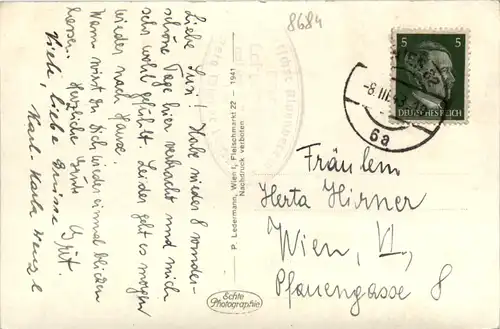 8684
Liebe Susi! Habe wieder 8 wunder-
schöne Tage hier verbracht und mich
sehr wohl gefühlt. Leider geht es morgen
wieder nach Hause.
Wann wirst du dich wieder einmal blicken
lassen. Herzliche Grüße
Viele, liebe Grüsse
P. Ledermann, Wien I, Fleischmarkt 22 – 1941
Nachdruck verboten
Echte
Photographie
5 5
DEUTSCHES REICH
WIEN
-8.III.43
6a
Fräulein
Herta Hirner
Wien, VI.,
Pfauengasse 8